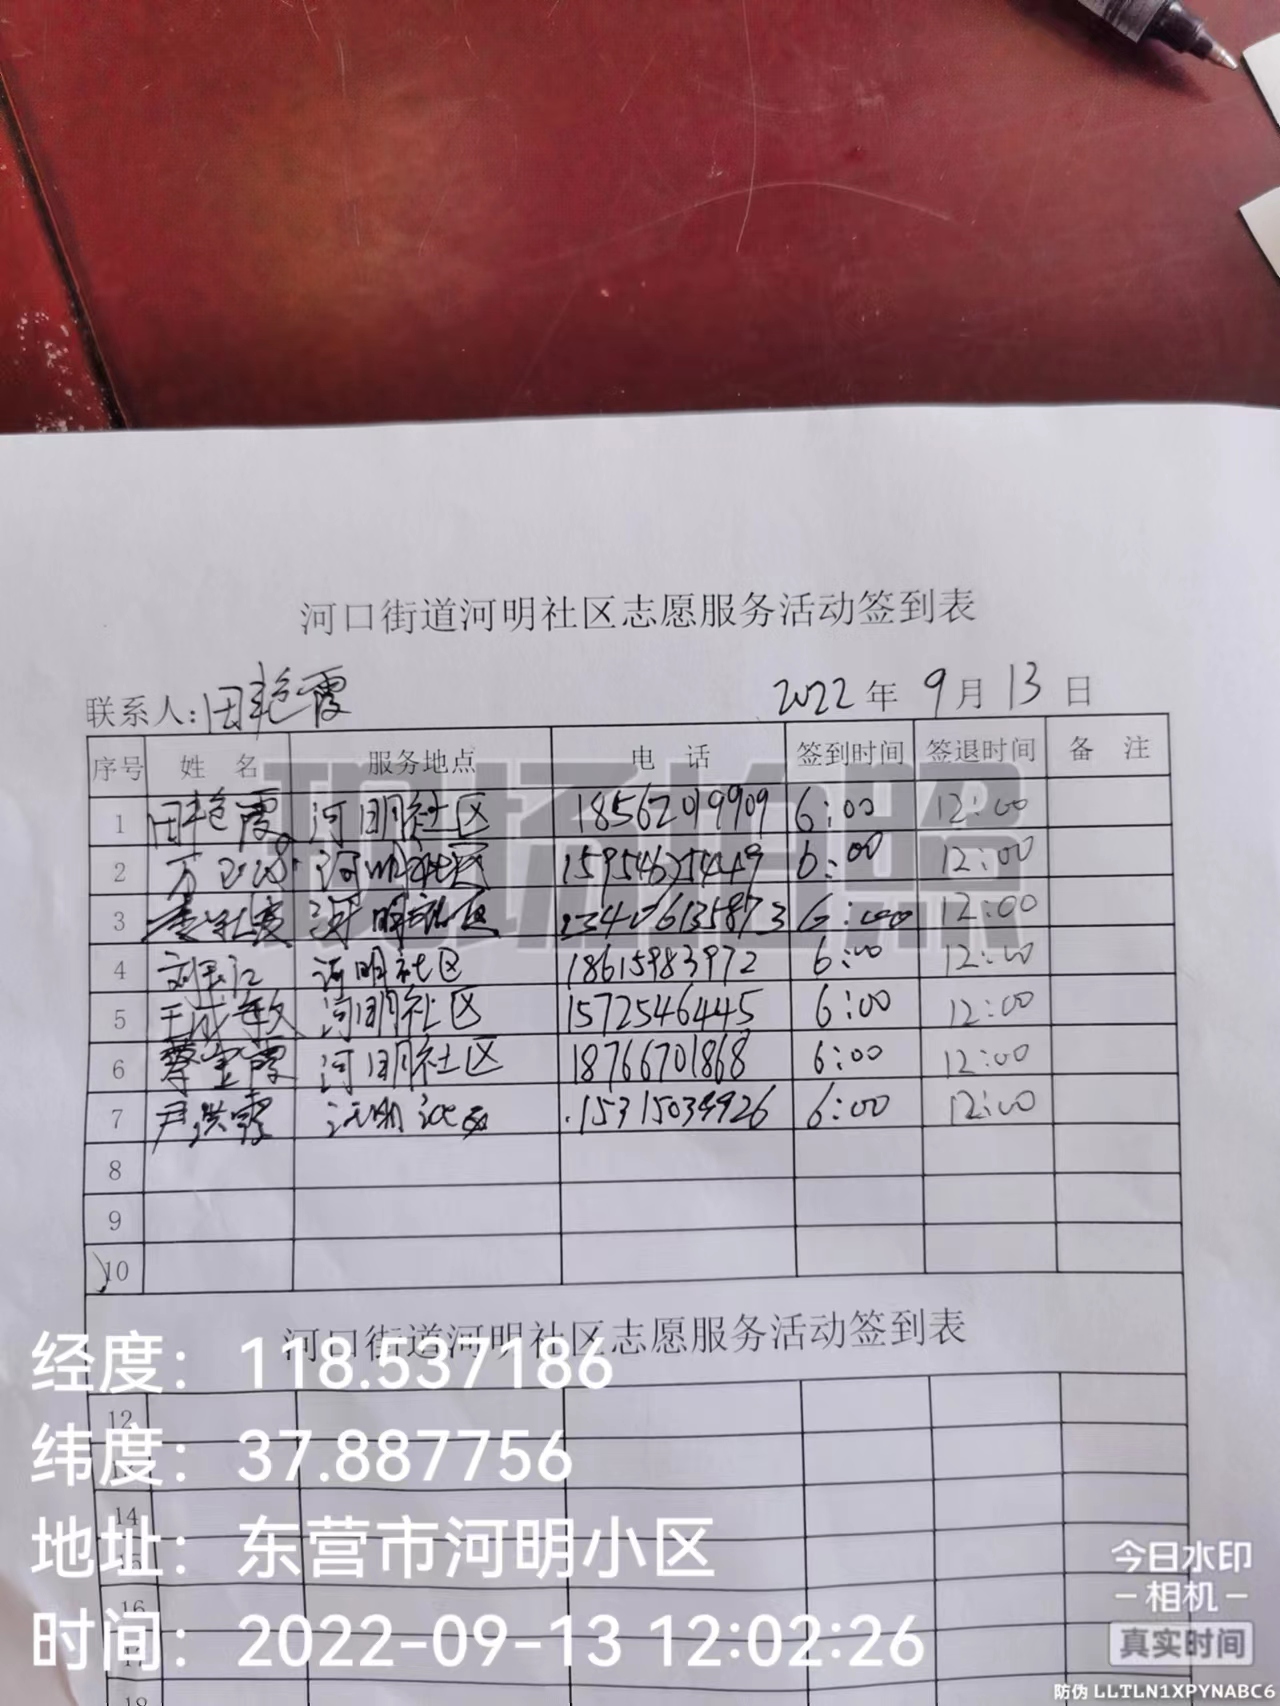 河口街道河明社区志愿服务活动签到表
联系人:田艳霞 2022年9月13日
序号 姓名 服务地点 电话 签到时间 签退时间 备注
1 田艳霞 河明社区 18562019909 6:00 12:00
2 万 河明社区 15954625449 6:00 12:00
3 河明社区 6:00 12:00
4 河明社区 18615983972 6:00 12:00
5 王成敏 河明社区 15725464445 6:00 12:00
6 蔡宝霞 河明社区 18766701868 6:00 12:00
7 尹洪霞 河明社区 15315034926 6:00 12:00
8
9
10
现场拍照
河口街道河明社区志愿服务活动签到表
12
13
14
15
16
17
18
经度：118.537186
纬度：37.887756
地址：东营市河明小区
时间：2022-09-13 12:02:26
今日水印
相机
真实时间
防伪 LLTLN1XPYNABC6